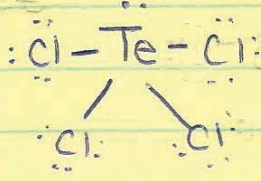 :Cl-Te-Cl:
Cl: :Cl: